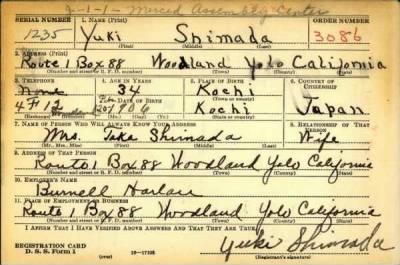 2-1-1- Merced Assembly Center
REGISTRATION CARD—
SERIAL NUMBER 1. NAME (Print) ORDER NUMBER
1235 Yuki Shimada 3086
(First) (Middle) (Last)
2. ADDRESS (Print)
Route 1 Box 88 Woodland Yolo California
(Number, street or R. F. D. number) (Town) (County) (State)
3. TELEPHONE 4. AGE IN YEARS 5. PLACE OF BIRTH 6. COUNTRY OF CITIZENSHIP
None 34 Kochi
4F12 DATE OF BIRTH Japan
1906 Kochi
(Exchange) (Number) (Mo.) (Day) (Yr.) (State or country)
7. NAME OF PERSON WHO WILL ALWAYS KNOW YOUR ADDRESS 8. RELATIONSHIP OF THAT PERSON
Mrs. Taka Shimada Wife
(Mr., Mrs., Miss) (First) (Middle) (Last)
9. ADDRESS OF THAT PERSON
Route 1 Box 88 Woodland Yolo California
(Number, street or R. F. D. number) (Town) (County) (State)
10. EMPLOYER'S NAME
Burnell Harlan
11. PLACE OF EMPLOYMENT OR BUSINESS
Route 1 Box 88 Woodland Yolo California
(Number, street or R. F. D. number) (Town) (County) (State)
I AFFIRM THAT I HAVE VERIFIED ABOVE ANSWERS AND THAT THEY ARE TRUE.
REGISTRATION CARD
D. S. S. Form 1 16—17105 Yuki Shimada
(Registrant's signature)